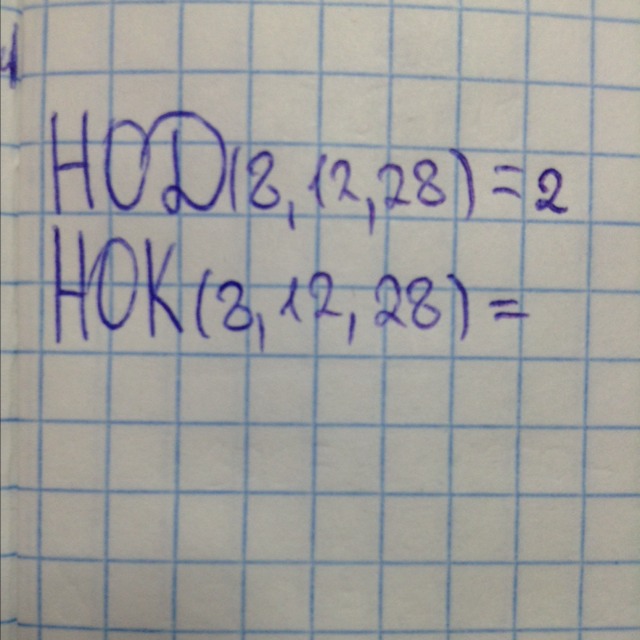 НОД(8,12,28)=2
НОК(8,12,28)=